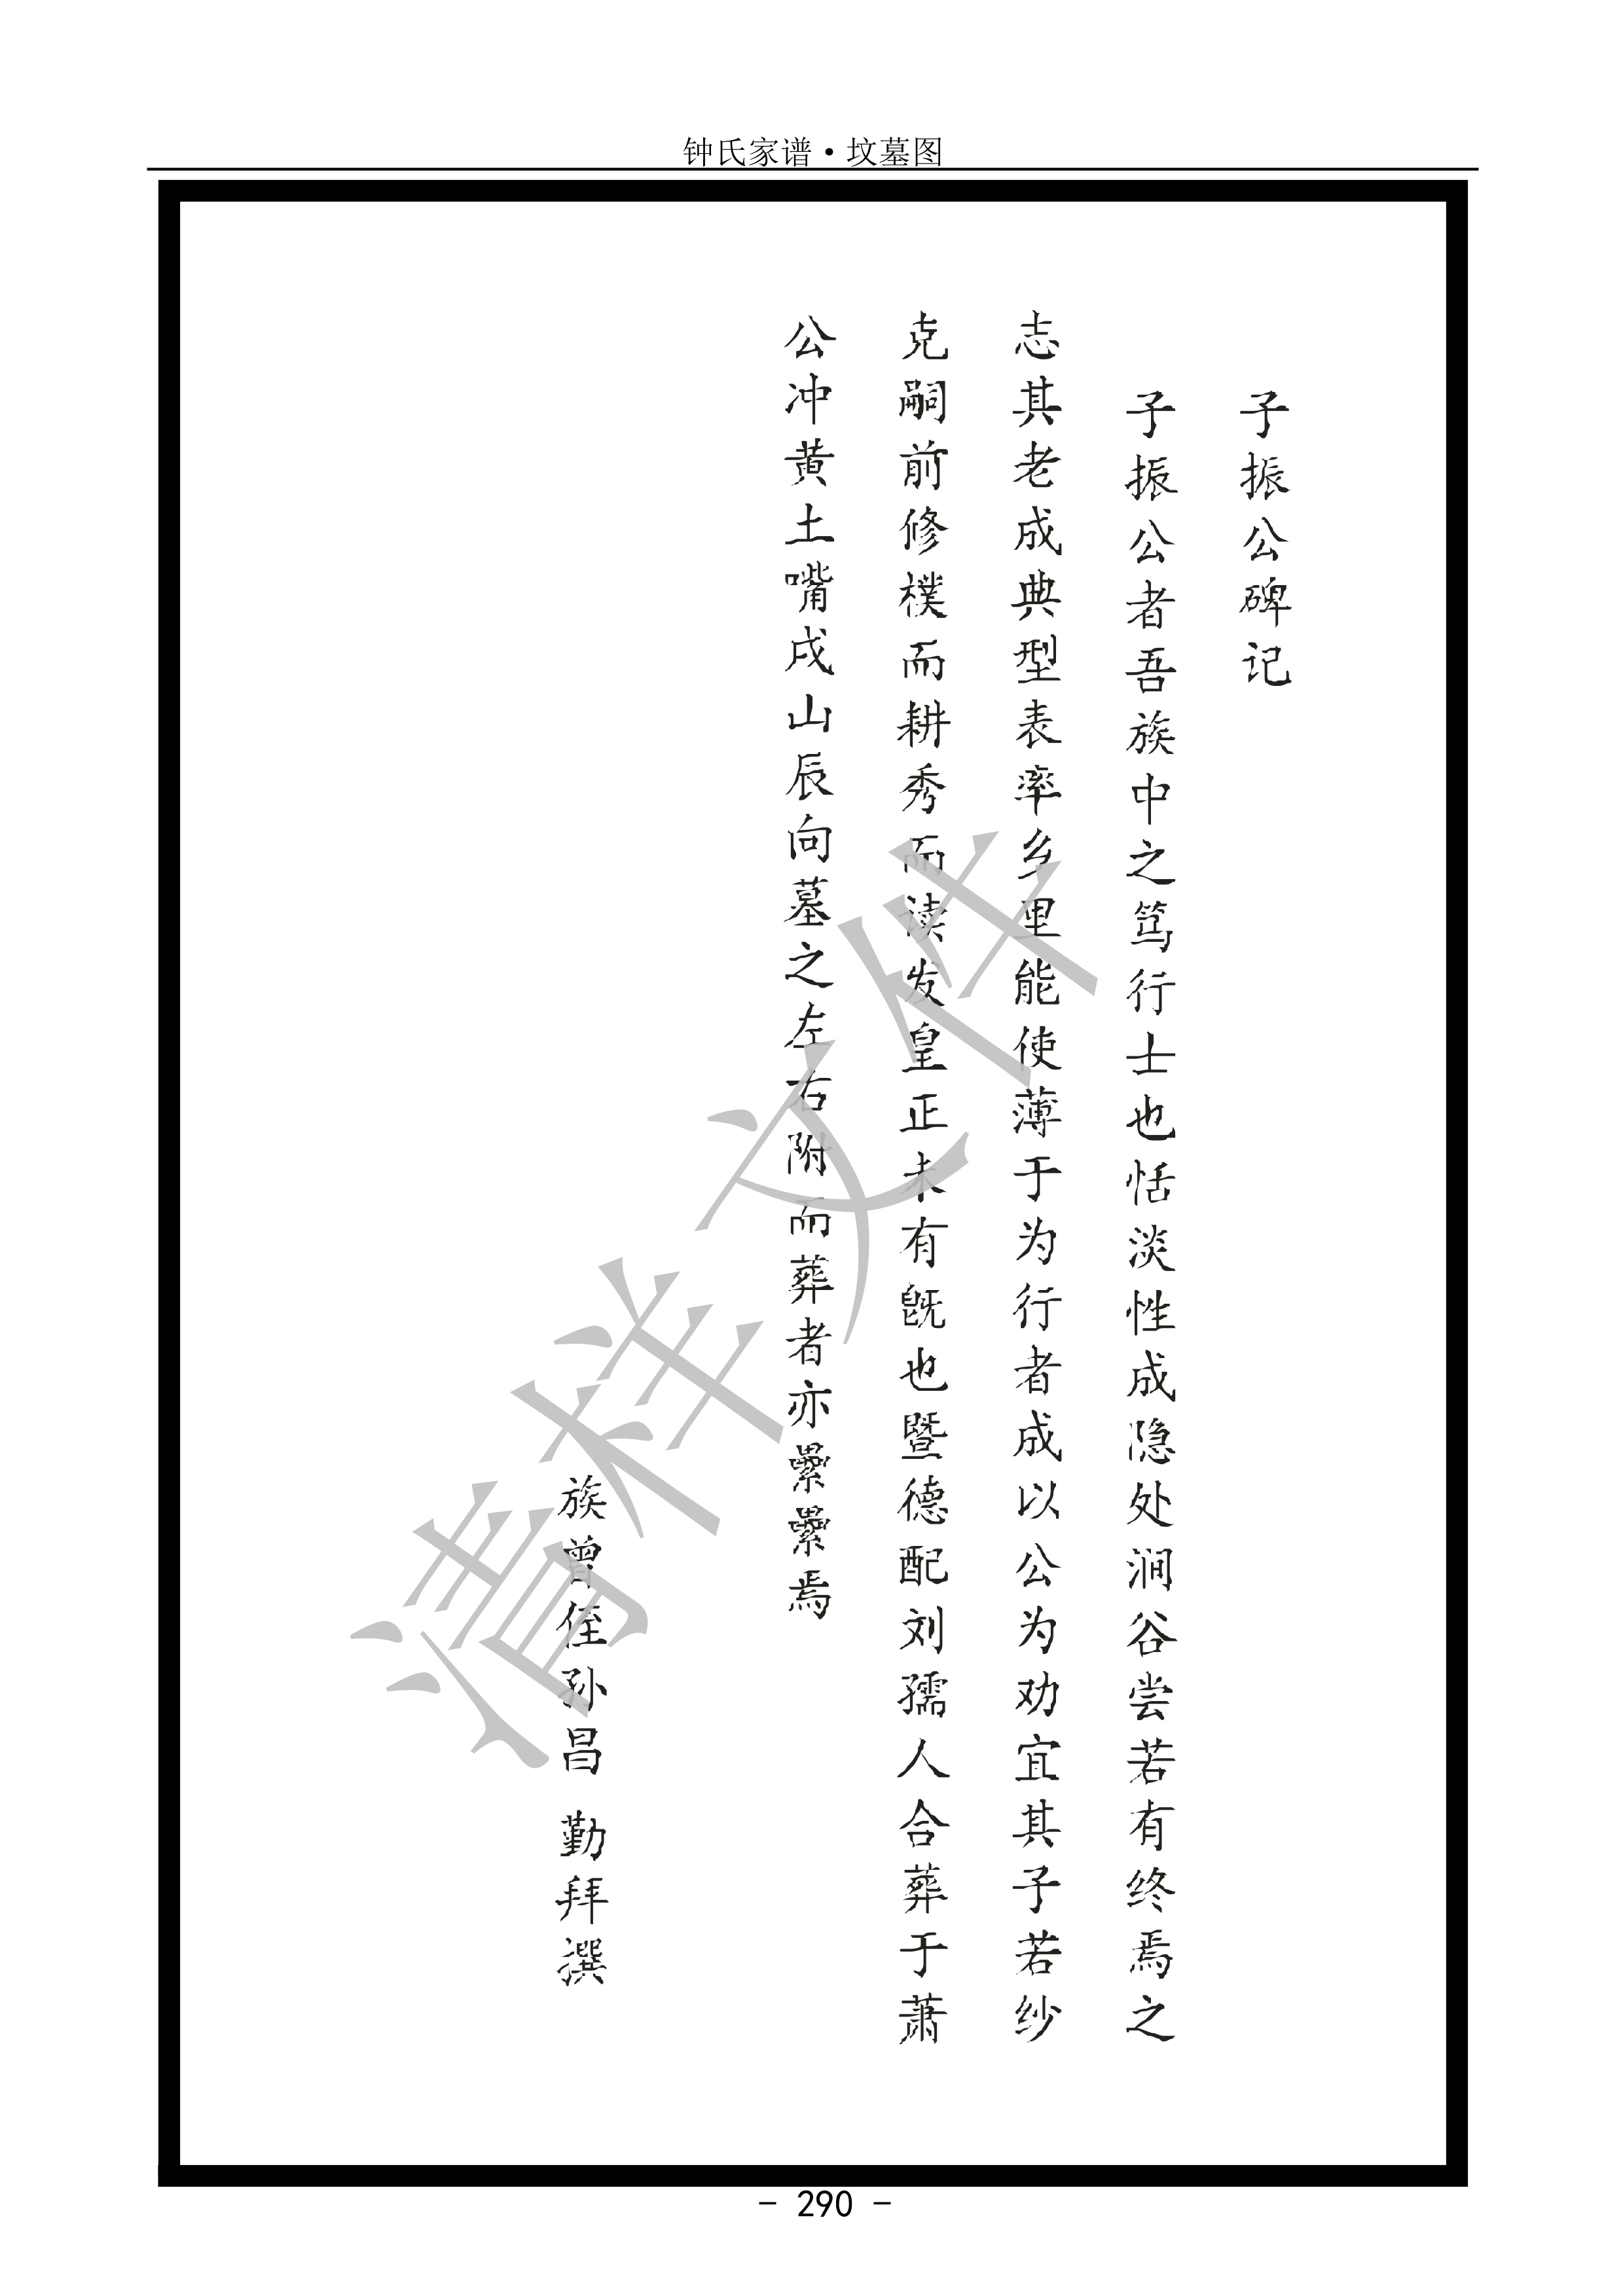 钟氏家谱·坟墓图
子振公碑记
子振公者吾族中之笃行士也恬淡性成隐处涧谷尝若有终焉之
志其老成典型表率乡里能使薄于为行者成以公为劝宜其子若纱
克嗣前修樸而耕秀而读发皇正未有既也暨德配刘孺人合葬于萧
公冲黄土嘴戌山辰向墓之左右附而葬者亦纍纍焉
族曾侄孙昌 勤拜撰
清样文件
- 290 -